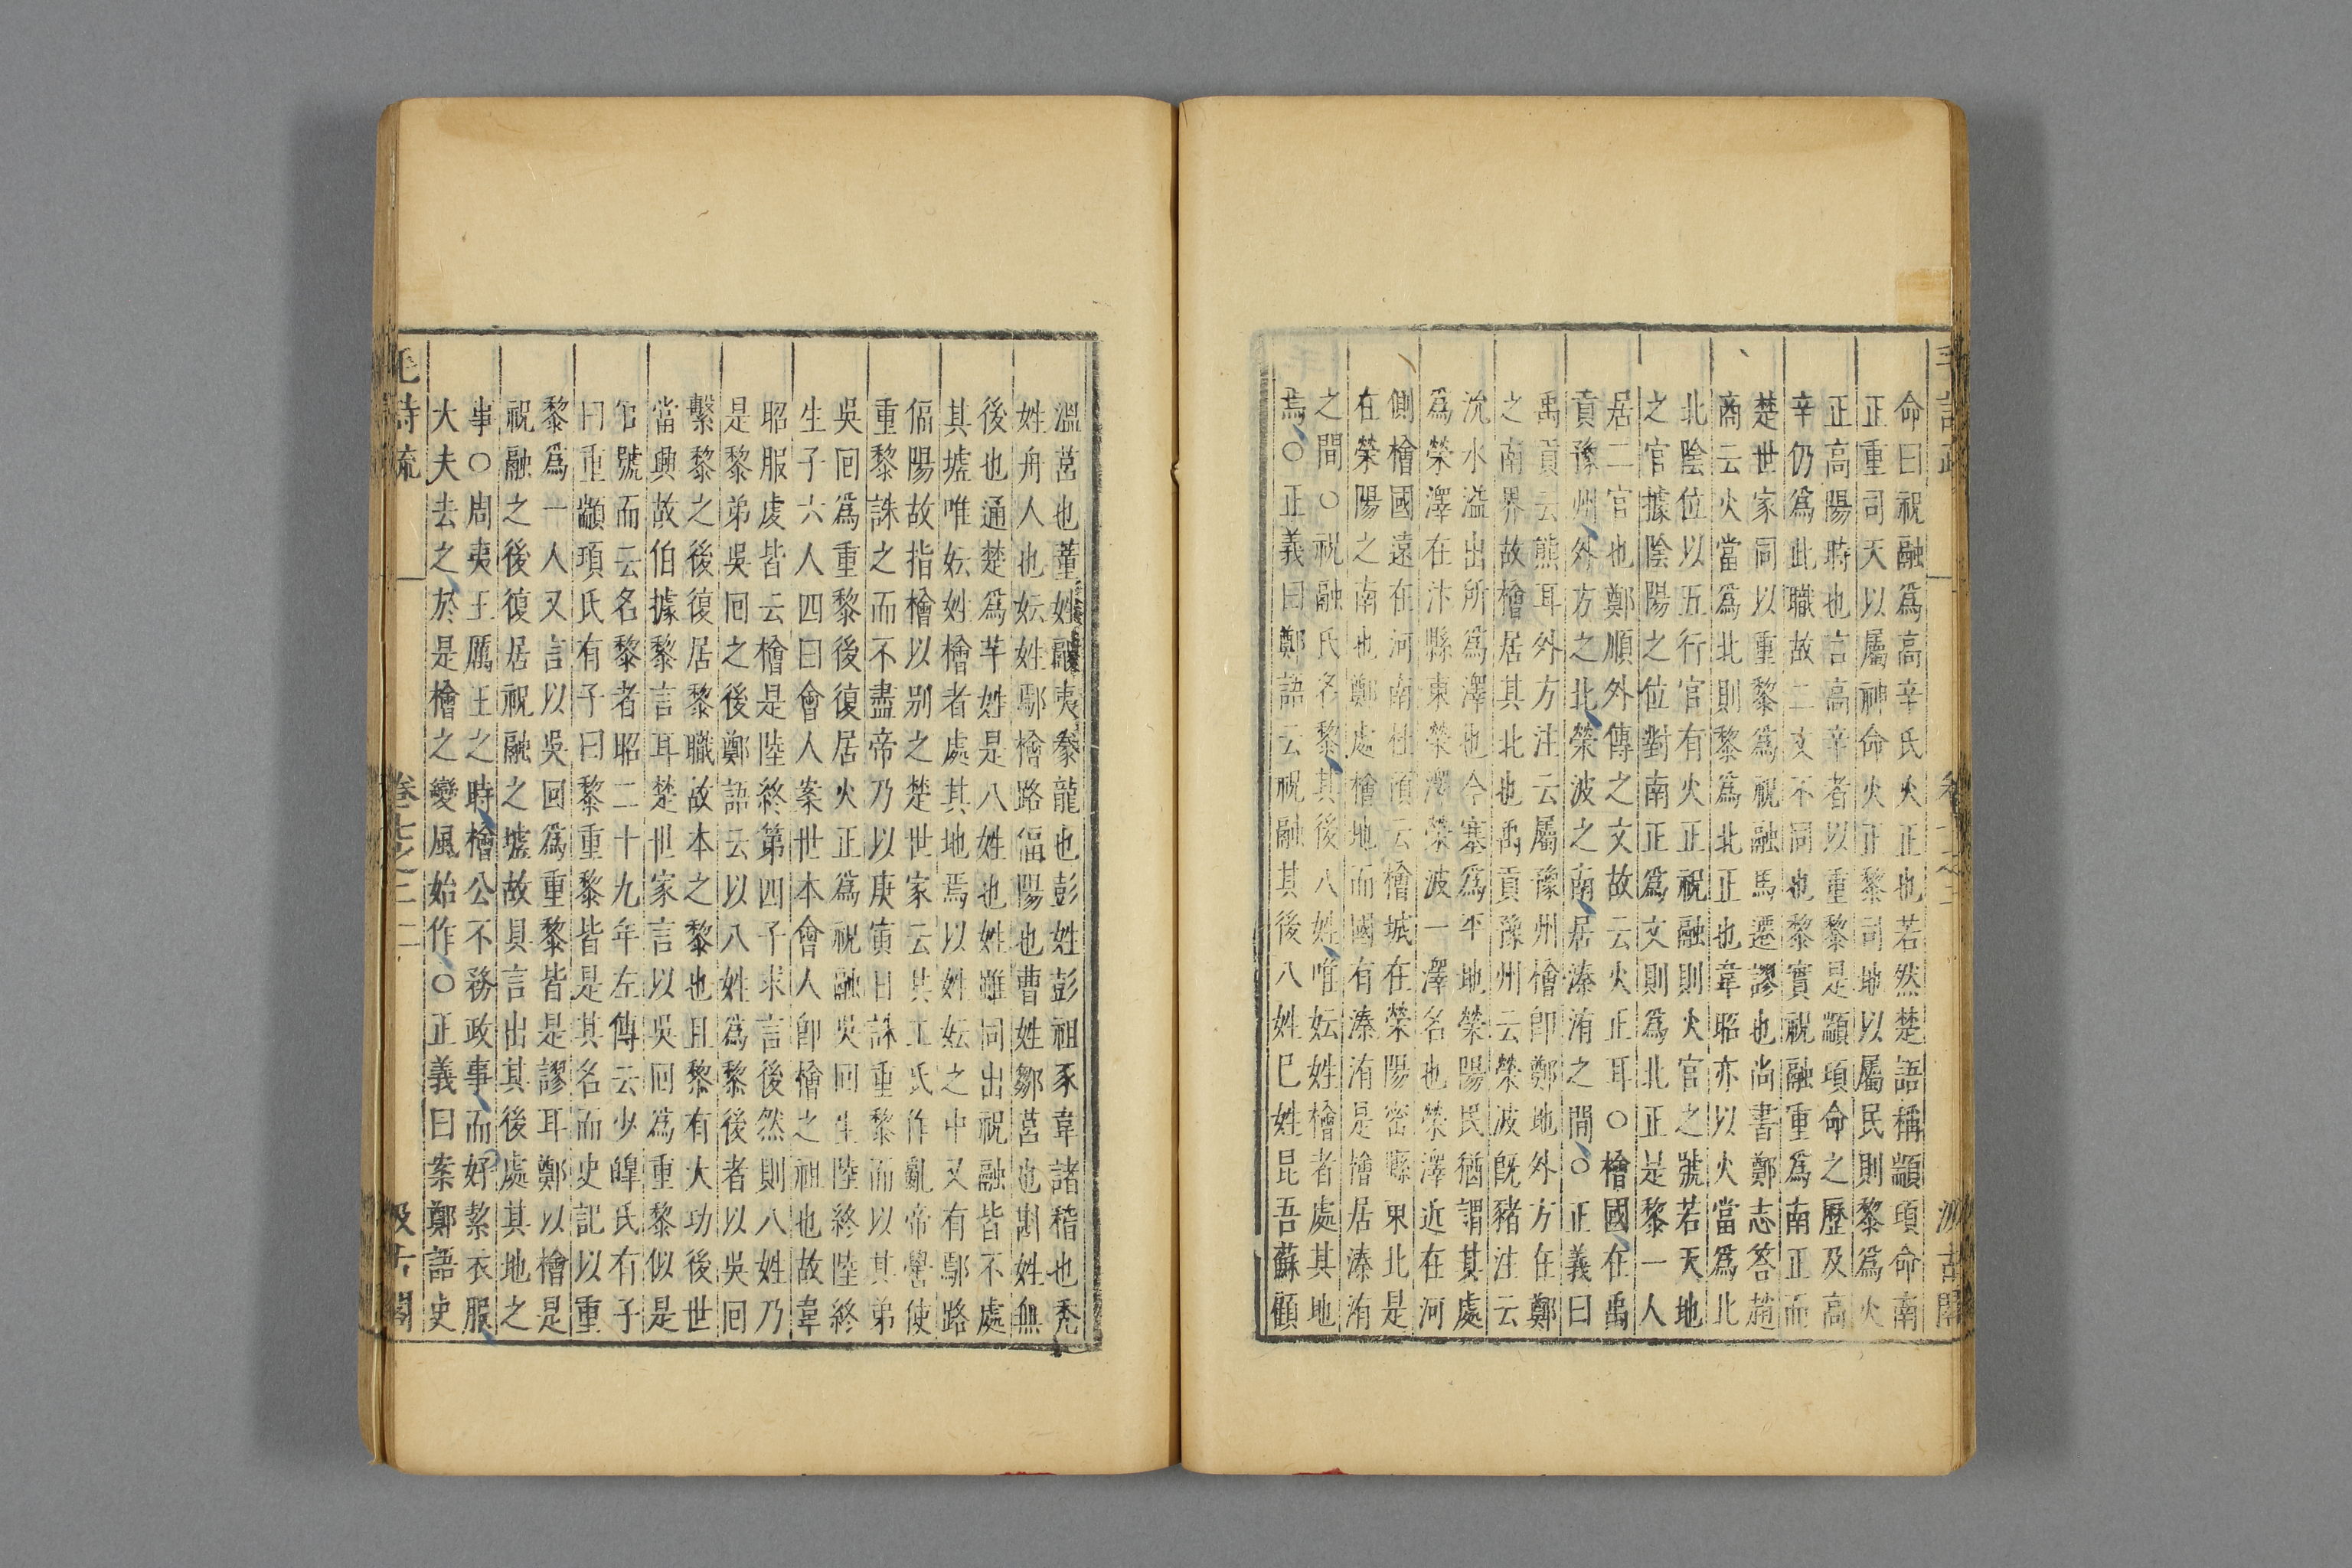 命曰祝融為高辛氏火正也若然楚語稱顓頊命南
正重司天以屬神命火正黎司地以屬民則黎為火
正高陽時也言高辛者以重黎是顓頊命之歷及高
辛仍為此職故二文不同也黎實祝融重為南正而
楚世家同以重黎為祝融馬遷謬也尚書鄭志答趙
商云火當為北則黎為北正也韋昭亦以火當為北
北陰位以五行官有火正祝融則火官之號若天地
之官據陰陽之位對南正為文則為北正是黎一人
居二官也鄭順外傳之文故云火正耳○檜國在禹
貢豫州外方之北滎波之南居溱洧之間○正義曰
禹貢云熊耳外方注云屬豫州檜即鄭地外方在鄭
之南界故檜居其北也禹貢豫州云滎波既豬注云
沇水溢出所為澤也今塞為平地滎陽民猶謂其處
為滎澤在汴縣東滎澤滎波一澤名也滎澤近在河
側檜國遠在河南杜預云檜城在滎陽密縣東北是
在滎陽之南也鄭處檜地而國有溱洧是檜居溱洧
之間○祝融氏名黎其後八姓唯妘姓檜者處其地
焉○正義曰鄭語云祝融其後八姓巳姓昆吾蘇顧
溫莒也董姓鬷夷豢龍也彭姓彭祖豕韋諸稽也禿
姓舟人也妘姓鄢檜路偪陽也曹姓鄒莒也斟姓無
後也通楚為羋姓是八姓也姓雖同出祝融皆不處
其墟唯妘姓檜者處其地焉以姓妘之中又有鄢路
偪陽故指檜以別之楚世家云共工氏作亂帝嚳使
重黎誅之而不盡帝乃以庚寅日誅重黎而以其弟
吳回為重黎後復居火正為祝融吳回生陸終陸終
生子六人四曰會人案世本會人即檜之祖也故韋
昭服虔皆云檜是陸終第四子求言後然則八姓乃
是黎弟吳回之後鄭語云以八姓為黎後者以吳回
繫黎之後復居黎職故本之黎也且黎有大功後世
當興故伯據黎言耳楚世家言以吳回為重黎似是
官號而云名黎者昭二十九年左傳云少皞氏有子
曰重顓頊氏有子曰黎重黎皆是其名而史記以重
黎為一人又言以吳回為重黎皆是謬耳鄭以檜是
祝融之後復居祝融之墟故具言出其後處其地之
事○周夷王厲王之時檜公不務政事而好絜衣服
大夫去之於是檜之變風始作○正義曰案鄭語史
毛詩疏 卷七之二 二 汲古閣